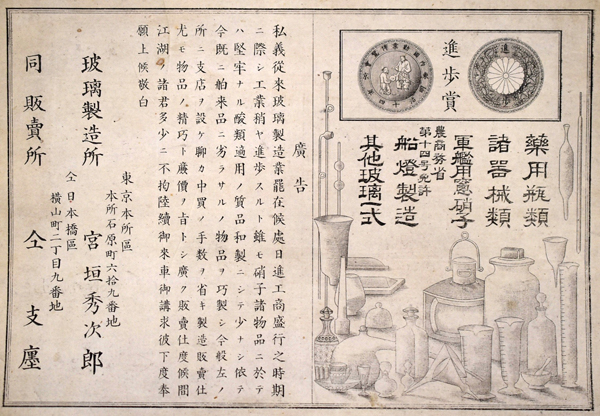 進歩賞
薬用瓶類
諸器械類
軍艦用窓硝子
農商務省
第十四号免許
船燈製造
其他玻璃一式
廣告
私義從来玻璃製造業罷在候處日進工商盛行之時期
ニ際シ工業稍ヤ進歩スルト雖モ硝子諸物品ニ於テ
ハ堅牢ナル酸類適用ノ質品和製ニシテ少ナシ依テ
今既ニ舶来品ニ劣ラサルノ物品ヲ巧製シ今般左ノ
所ニ支店ヲ設ケ聊カ中買ノ手数ヲ省キ製造販賣仕
尤モ物品ノ精巧ト廉價ノ旨トシ廣ク販賣仕度候間
江湖ノ諸君多少ニ不拘陸續御来車御講求彼下度奉
願上候敬白
東京本所區
本所石原町六拾九番地
玻璃製造所 宮垣秀次郎
仝日本橋區
横山町二丁目九番地
同販賣所 仝支廛